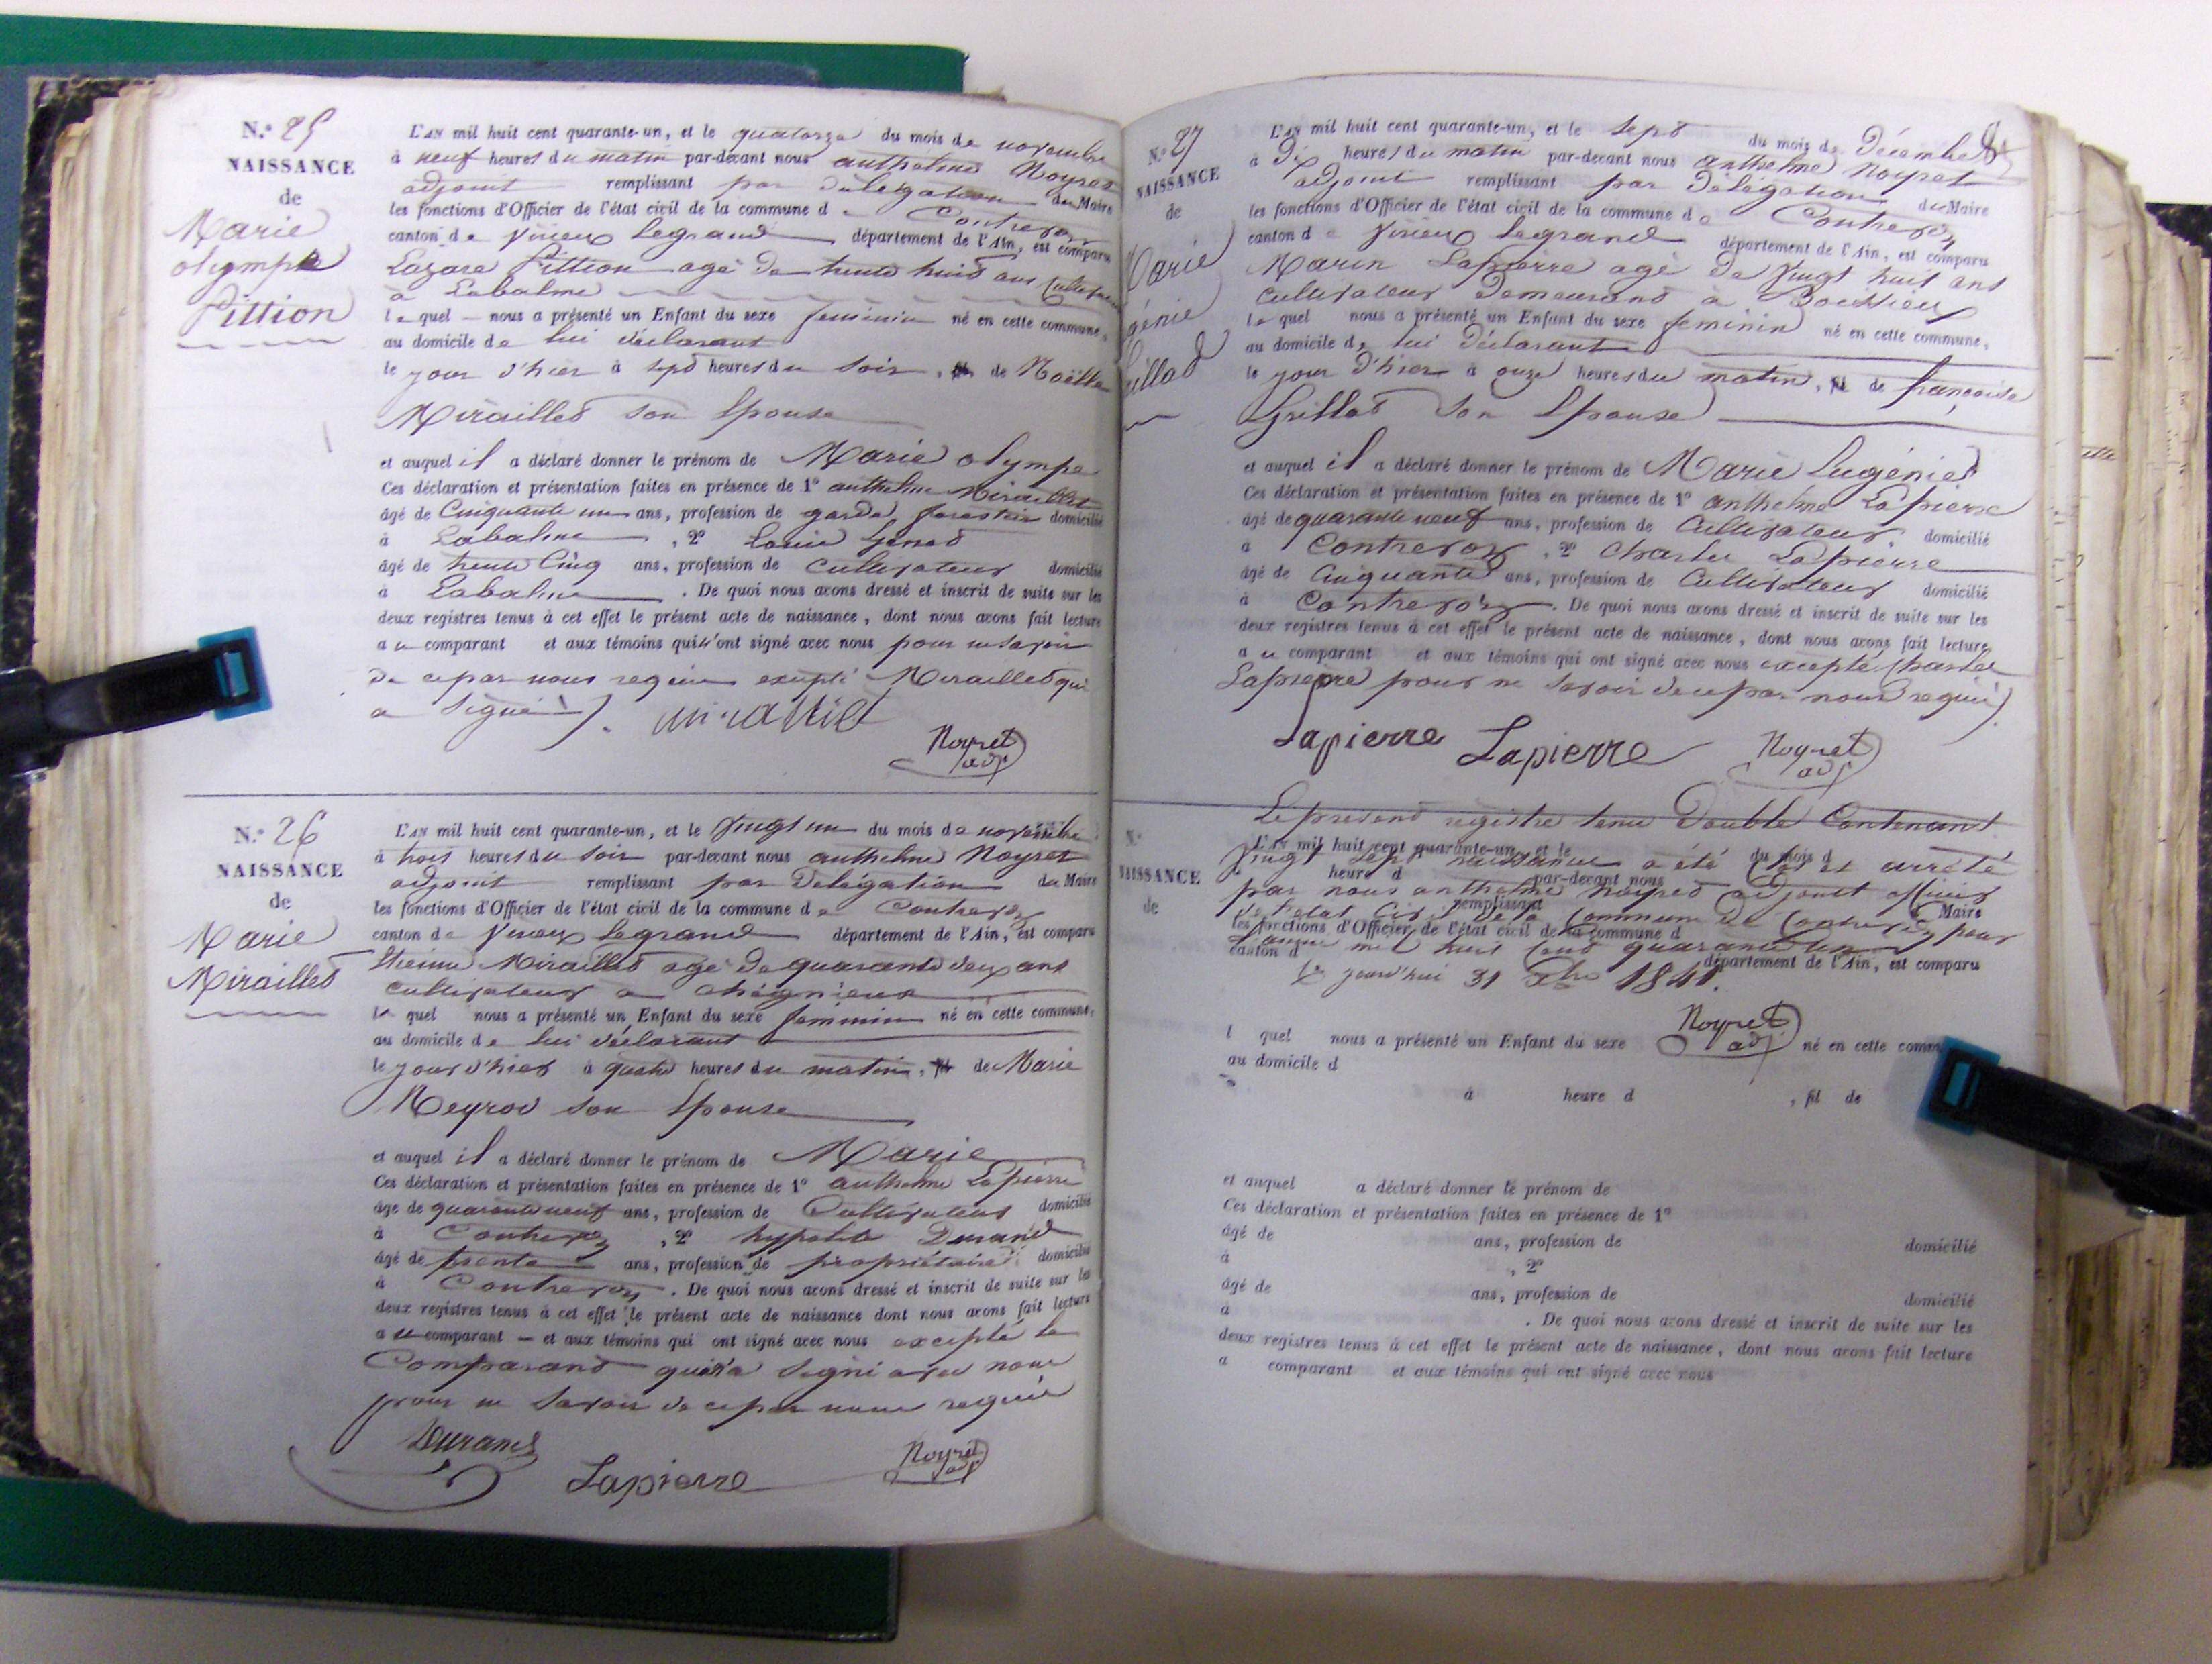 N.° 25
NAISSANCE
de
Marie
olympe
Pittion
L'AN mil huit cent quarante-un, et le quatorze du mois de novembre
à neuf heures du matin par-devant nous anthelme Noyret
adjoint remplissant par délégation du Maire
les fonctions d'Officier de l'état civil de la commune de Contrevoz
canton de Virieux legrand département de l'Ain, est comparu
Lazare Pittion agé de trente huit ans Cultivateur
à Labalme
le quel nous a présenté un Enfant du sexe feminin né en cette commune,
au domicile de lui déclarant
le jour d'hier à sept heures du soir, de Noëlle
Miraillet son Epouse
et auquel il a déclaré donner le prénom de Marie olympe
Ces déclaration et présentation faites en présence de 1° anthelme Miraillet
âgé de Cinquante un ans, profession de garde forestier domicilié
à Labalme, 2° Louis
âgé de trente Cinq ans, profession de Cultivateur domicilié
à Labalme. De quoi nous avons dressé et inscrit de suite sur les
deux registres tenus à cet effet le présent acte de naissance, dont nous avons fait lecture
au comparant et aux témoins qui n'ont signé avec nous pour ne savoir
de ce par nous requis excepté Miraillet qui
a signé. miralliet
Noyret
adj
N.° 26
NAISSANCE
de
Marie
Miraillet
L'AN mil huit cent quarante-un, et le Vingt un du mois de novembre
à trois heures du soir par-devant nous anthelme Noyret
adjoint remplissant par Delégation du Maire
les fonctions d'Officier de l'état civil de la commune de Contrevoz
canton de Virieux legrand département de l'Ain, est comparu
Etienne Miraillet agé de quarante deux ans
Cultivateur a chégnieux
le quel nous a présenté un Enfant du sexe feminin né en cette commune,
au domicile de lui déclarant
le jour d'hier à quatre heures du matin, de Marie
Meyrod son Epouse
et auquel il a déclaré donner le prénom de Marie
Ces déclaration et présentation faites en présence de 1° anthelme Lapierre
âgé de quarante neuf ans, profession de Cultivateur domicilié
à Contrevoz, 2° hypolite Durand
âgé de trente ans, profession de propriétaire domicilié
à Contrevoz. De quoi nous avons dressé et inscrit de suite sur les
deux registres tenus à cet effet le présent acte de naissance dont nous avons fait lecture
au comparant et aux témoins qui ont signé avec nous excepté le
Comparant qui n'a signé avec nous
pour ne savoir de ce par nous requis
Durand
Lapierre
Noyret
adj
N.° 27
NAISSANCE
de
Marie
génie
L'AN mil huit cent quarante-un, et le sept du mois de Décembre
à Dix heures du matin par-devant nous anthelme Noyret
adjoint remplissant par Délégation du Maire
les fonctions d'Officier de l'état civil de la commune de Contrevoz
canton de Virieux legrand département de l'Ain, est comparu
Marin Lapierre agé de Vingt huit ans
Cultivateur Demeurant à Boissieu
le quel nous a présenté un Enfant du sexe feminin né en cette commune,
au domicile de lui Déclarant
le jour d'hier à onze heures du matin, de françoise
Grillot son Epouse
et auquel il a déclaré donner le prénom de Marie Eugénie
Ces déclaration et présentation faites en présence de 1° anthelme Lapierre
âgé de quarante neuf ans, profession de Cultivateur domicilié
à Contrevoz, 2° Charles Lapierre
âgé de Cinquante ans, profession de Cultivateur domicilié
à Contrevoz. De quoi nous avons dressé et inscrit de suite sur les
deux registres tenus à cet effet le présent acte de naissance, dont nous avons fait lecture
au comparant et aux témoins qui ont signé avec nous excepté Charles
Lapierre pour ne savoir de ce par nous requis
Lapierre Lapierre Noyret
adj
Le présent registre tenu Double Contenant
N.°
NAISSANCE
de
L'AN mil huit cent quarante-un, et le du mois d
Vingt sept naissances a été Clos et arrêté
heure d par-devant nous
par nous anthelme Noyret adjoint officier
remplissant Maire
de l'etat Civil de la Commune de Contrevoz pour
les fonctions d'Officier de l'état civil de la commune d
L'année mil huit Cent quarante un
canton d département de l'Ain, est comparu
Ce jourd'hui 31 Xbre 1841.
Noyret
adj
l quel nous a présenté un Enfant du sexe né en cette comm
au domicile d
à heure d , fil de
et auquel a déclaré donner le prénom de
Ces déclaration et présentation faites en présence de 1°
âgé de ans, profession de domicilié
à , 2°
âgé de ans, profession de domicilié
à . De quoi nous avons dressé et inscrit de suite sur les
deux registres tenus à cet effet le présent acte de naissance, dont nous avons fait lecture
a comparant et aux témoins qui ont signé avec nous